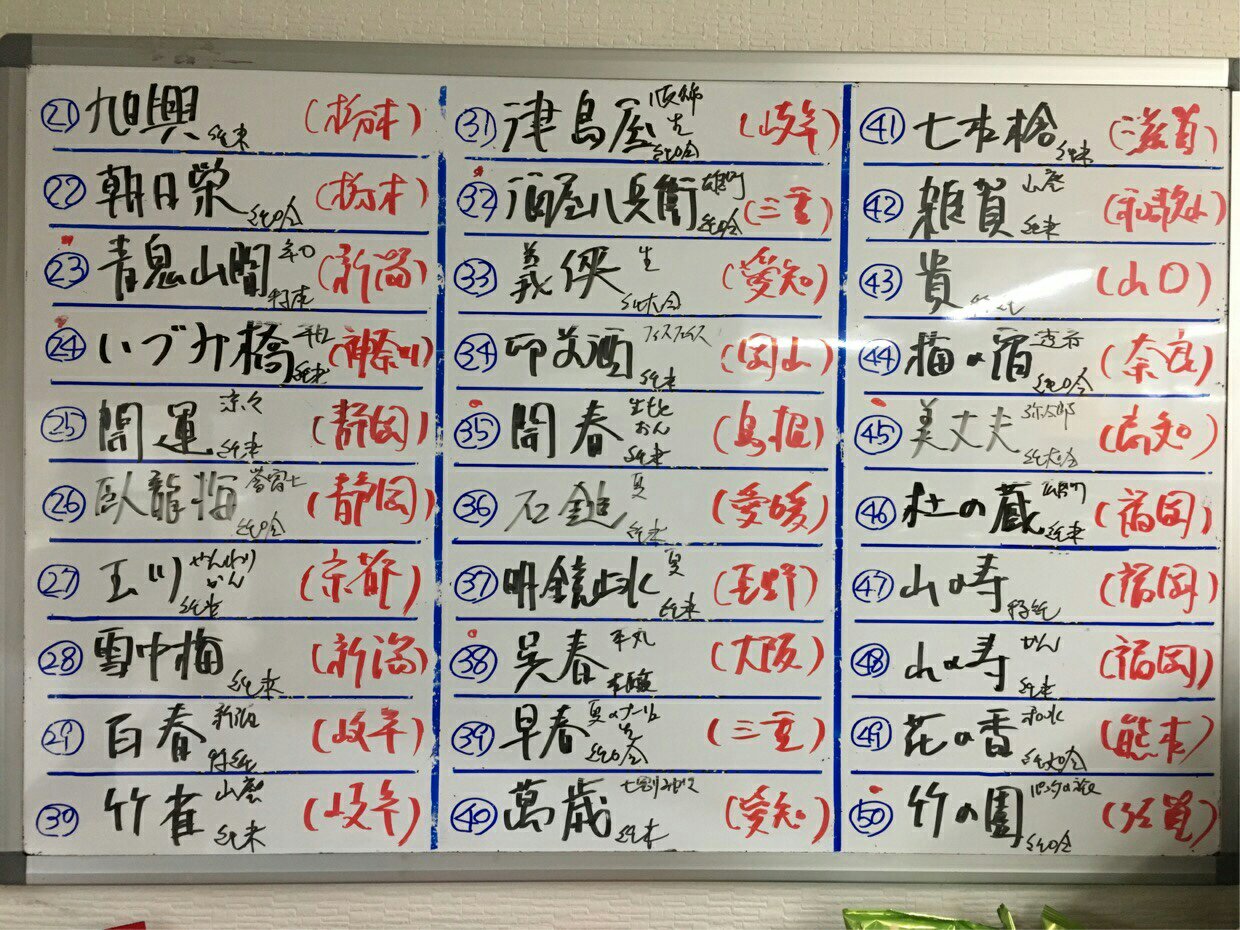 ㉑ 旭興 純米 (栃木)
㉒ 朝日榮 純吟 (栃木)
㉓ 青鬼山間 (新潟)
㉔ いづみ橋 純米 (神奈川)
㉕ 開運 涼々 純米 (静岡)
㉖ 臥龍梅 誉富士 純吟 (静岡)
㉗ 玉川 やんわり かん 純米 (京都)
㉘ 雪中梅 純米 (新潟)
㉙ 百春 新酒 特純 (岐阜)
㉚ 竹雀 山廃 純米 (岐阜)
㉛ 津島屋 生 純吟 (岐阜)
㉜ 酒屋八兵衛 雄町 純吟 (三重)
㉝ 義侠 生 純大吟 (愛知)
㉞ 純米 (岡山)
㉟ 開春 生もと おん 純米 (島根)
㊱ 石鎚 夏 純米 (愛媛)
㊲ 明鏡止水 夏 純米 (長野)
㊳ 呉春 本醸 (大阪)
㊴ 早春 夏の 生 純吟 (三重)
㊵ 萬歳 純米 (愛知)
㊶ 七本槍 純米 (滋賀)
㊷ 雑賀 山廃 純米 (和歌山)
㊸ 貴 特純 (山口)
㊹ 梅の宿 純吟 (奈良)
㊺ 美丈夫 弥太郎 純大吟 (高知)
㊻ 杜の蔵 雄町 純米 (福岡)
㊼ 山の寿 特純 (福岡)
㊽ 山の寿 かん 純米 (福岡)
㊾ 花の香 和水 純大吟 (熊本)
㊿ 竹の園 純吟 (佐賀)